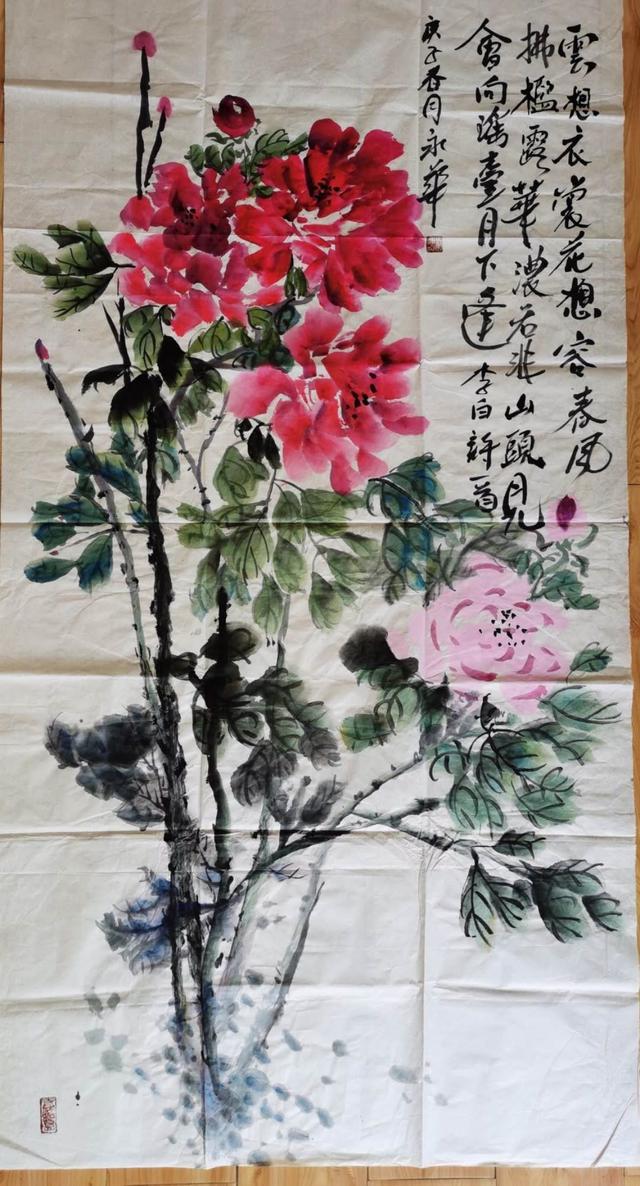 雲想衣裳花想容春风
拂檻露華濃若非山頭見
會向瑤臺月下逢 李白詩一首
庚子春月永華